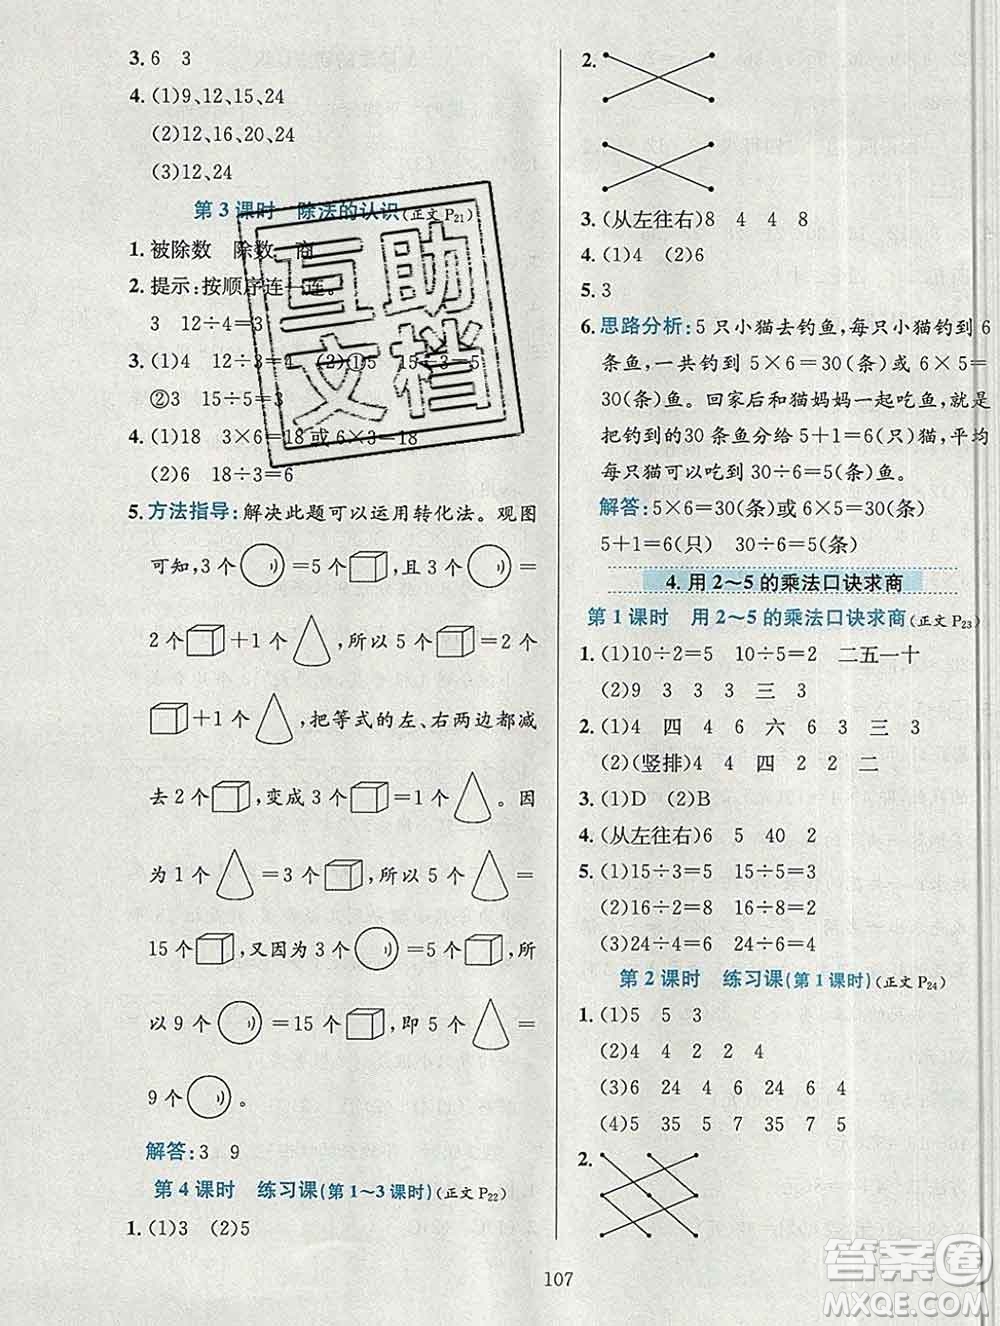 3. 6　3
4. (1)9、12、15、24
(2)12、16、20、24
(3)12、24
第 3 课时　除法的认识(正文 P21)
1. 被除数　除数　商
2. 提示：按顺序连一连。
3　12÷4＝3
3. (1)4　12÷3＝4　(2)①5　15÷3＝5
②3　15÷5＝3
4. (1)18　3×6＝18 或 6×3＝18
(2)6　18÷3＝6
5. 方法指导：解决此题可以运用转化法。观图
可知，3 个＝5 个，且 3 个＝
2 个＋1 个，所以 5 个＝2 个
＋1 个，把等式的左、右两边都减
去 2 个，变成 3 个＝1 个。因
为 1 个＝3 个，所以 5 个＝
15 个，又因为 3 个＝5 个，所
以 9 个＝15 个，即 5 个＝
9 个。
解答：3　9
第 4 课时　练习课(第 1～3 课时)(正文 P22)
1. (1)3　(2)5
互助
文档
2.
3. (从左往右)8　4　4　8
4. (1)4　(2)6
5. 3
6. 思路分析：5 只小猫去钓鱼，每只小猫钓到 6
条鱼，一共钓到 5×6＝30(条)或 6×5＝
30(条)鱼。回家后和猫妈妈一起吃鱼，就是
把钓到的30 条鱼分给 5＋1＝6(只)猫，平均
每只猫可以吃到 30÷6＝5(条)鱼。
解答：5×6＝30(条)或 6×5＝30(条)
5＋1＝6(只)　30÷6＝5(条)
4. 用 2～5 的乘法口诀求商
第 1 课时　用 2～5 的乘法口诀求商(正文 P23)
1. (1)10÷2＝5　10÷5＝2　二五一十
(2)9　3　3　3　三　3
2. (1)4　四　4　6　六　6　3　三　3
(2)(竖排)4　4　四　2　2　二
3. (1)D　(2)B
4. (从左往右)6　5　40　2
5. (1)15÷3＝5　15÷5＝3
(2)16÷2＝8　16÷8＝2
(3)24÷4＝6　24÷6＝4
第 2 课时　练习课(第 1 课时)(正文 P24)
1. (1)5　5　3
(2)4　4　2　2　4
(3)6　24　4　6　24　6
(4)5　35　5　7　35　7
2.
107
答案圈
MXQE.COM